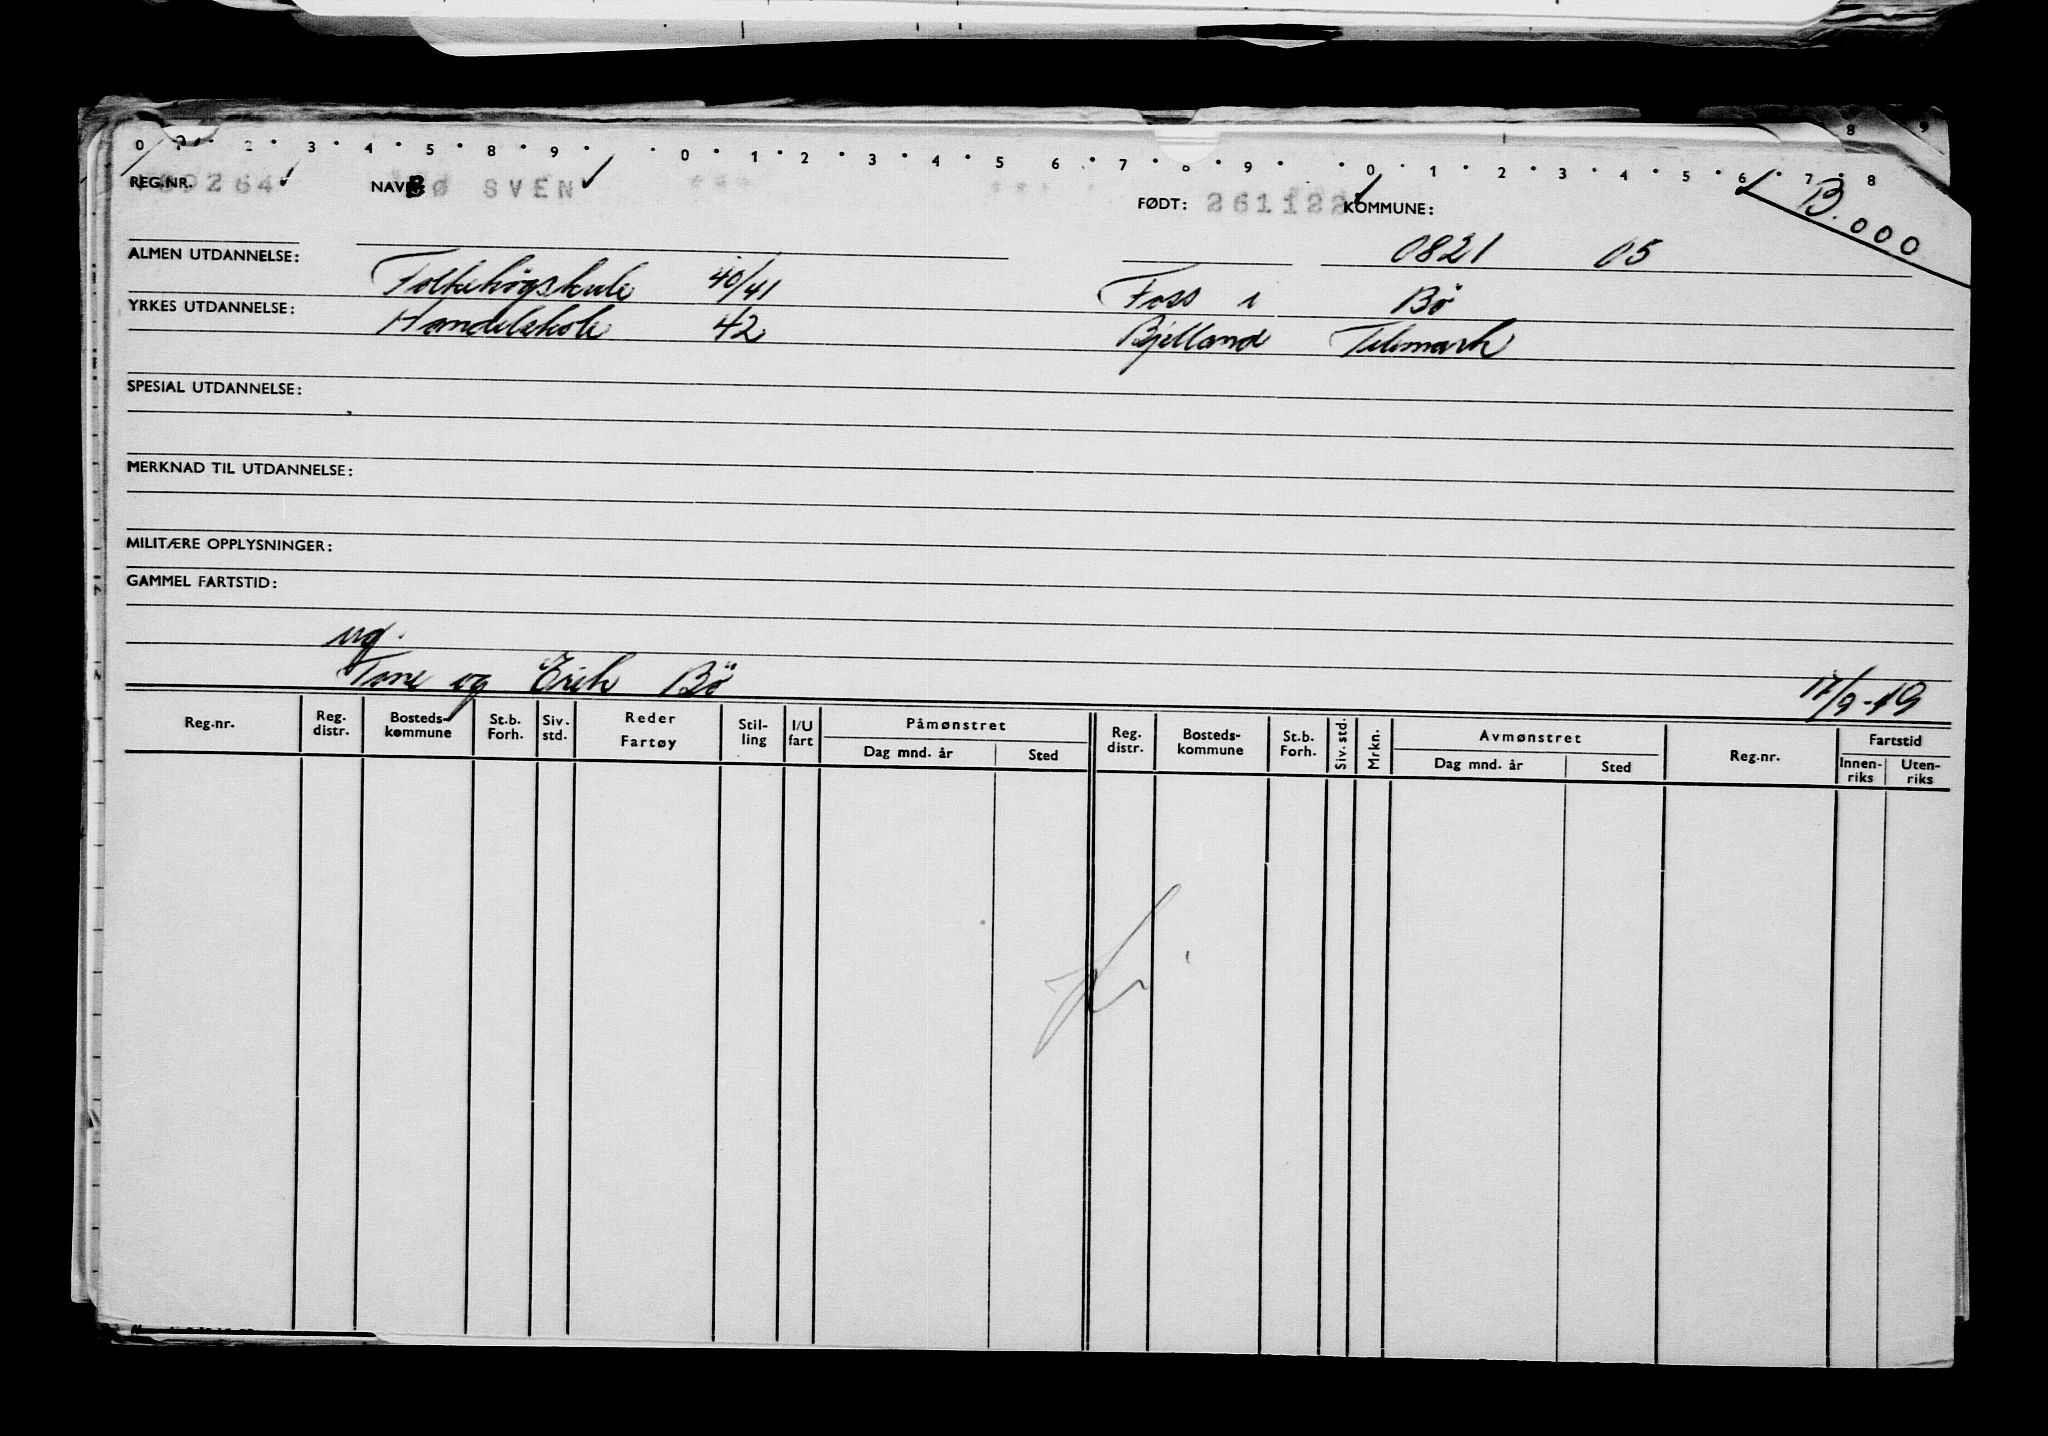 0 2 3 4 5 8 9 0 1 2 3 4 5 6 7 8 9 0 1 2 3 4 5 6 7 8 8 9
REG.NR. 264 NAVN: BØ SVEN FØDT: 261122 KOMMUNE: B.000
0821 05
ALMEN UTDANNELSE: Folkehøgskule 40/41 Foss i Bö
YRKES UTDANNELSE: Handelskole 42 Bjelland Telemark
SPESIAL UTDANNELSE:
MERKNAD TIL UTDANNELSE:
MILITÆRE OPPLYSNINGER:
GAMMEL FARTSTID:
ug.
Tone og Erik Bö 17/9-49
Reg.nr. Reg. distr. Bosteds-kommune St.b. Forh. Siv. std. Reder Fartøy Stil-ling I/U fart Påmønstret Dag mnd. år Sted Reg. distr. Bosteds-kommune St.b. Forh. Siv. std. Mrkn. Avmønstret Dag mnd. år Sted Reg.nr. Fartstid Innen-riks Uten-riks